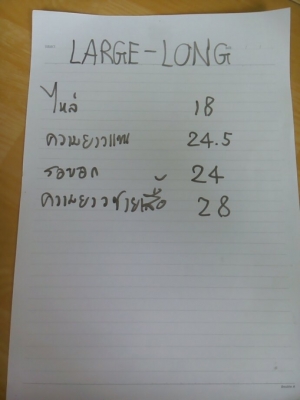 LARGE-LONG
ไหล่ 18
ความยาวแขน 24.5
รอบอก 24
ความยาวชายเสื้อ 28